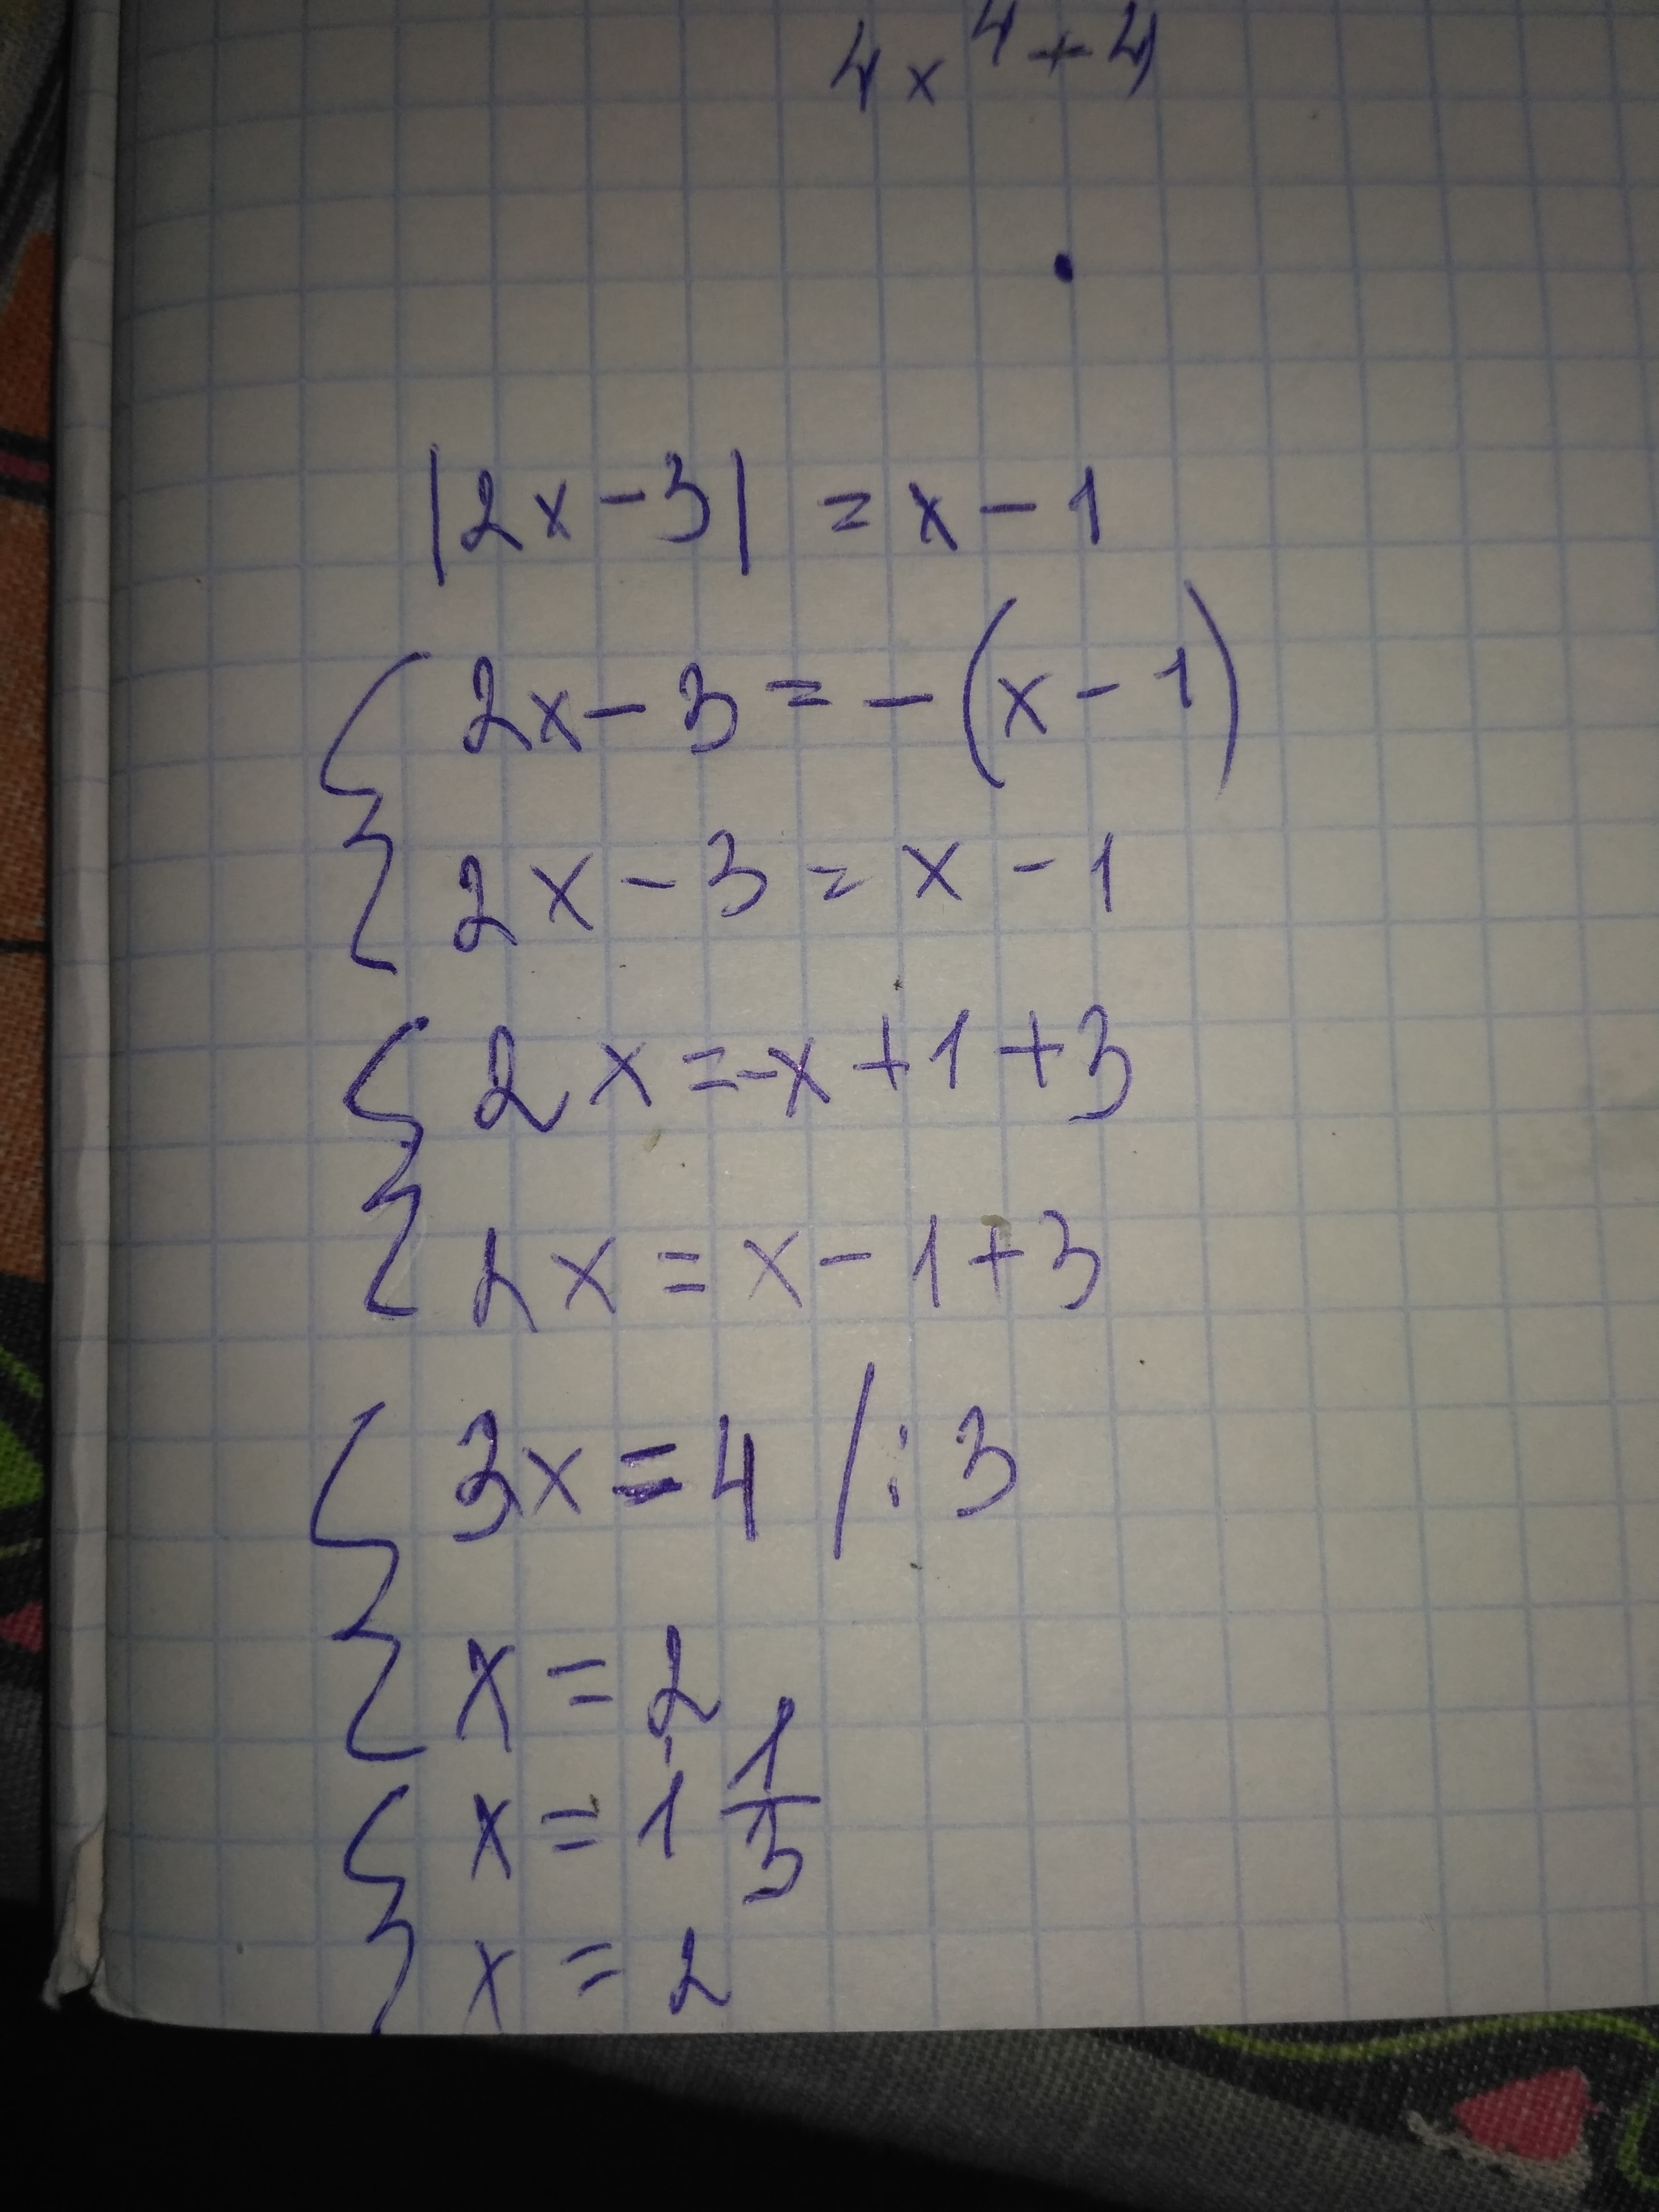 4x⁴+4
|2x-3| = x-1
{ 2x-3=-(x-1)
2x-3=x-1
{ 2x=-x+1+3
2x=x-1+3
{ 3x=4 /:3
x=2
{ x=1 1/3
x=2